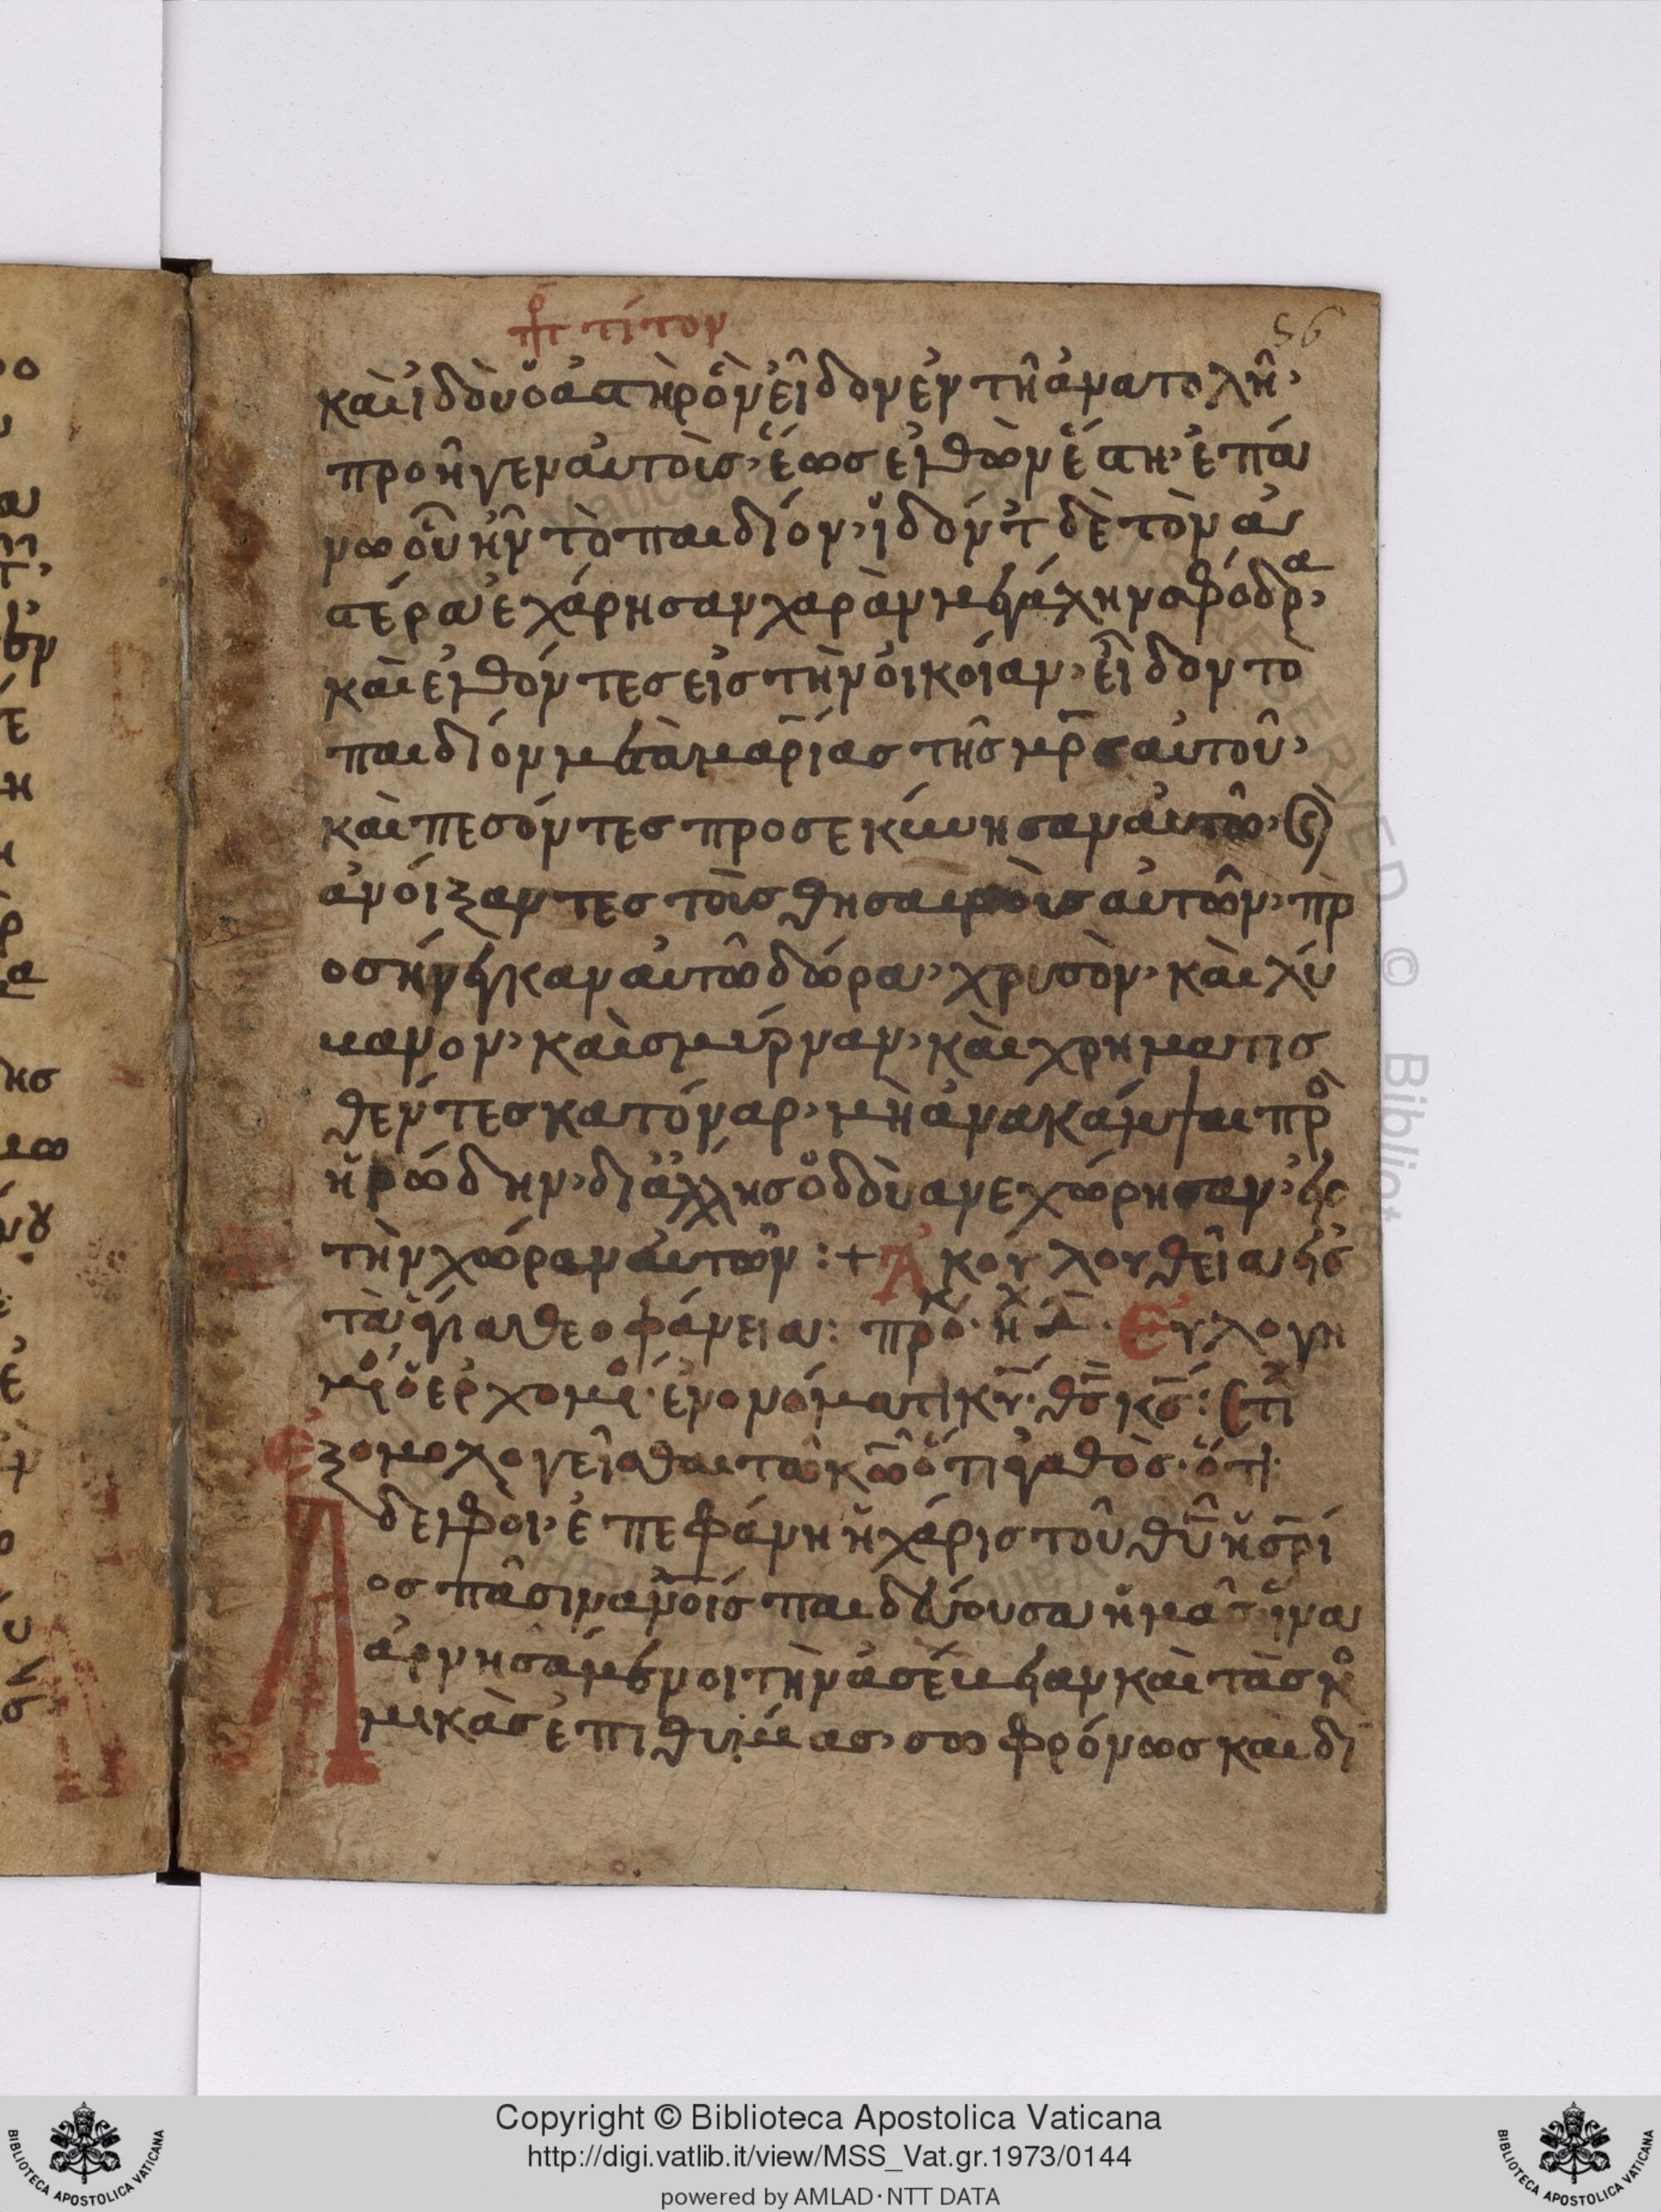 πρ τίτον
56
καὶ ἰδοὺ ὁ ἀστὴρ ὃν εἶδον ἐν τῆ ἀνατολῆ,
προῆγεν αὐτοὶς, ἕωσ ἐλθὼν ἔστη, ἐπά
νω οὗ ἦν τὸ παιδίον, ἰδόντ δὲ τὸν ἀσ
στέρα, ἐχάρησαν χαρὰν μεγάλην σφόδρα,
καὶ ἐλθόντεσ εἰσ τὴν οἰκοίαν, εἶδον τὸ
παιδίον μετὰ μαρίασ τῆσ μρ̅σ αὐτοῦ,
καὶ πεσόντεσ προσεκύνησαν αὐτῶ, ϗ
ἀνοίξαντεσ τοὶσ θησαυροὶσ αὐτῶν, πρ
οσήνεγκαν αὐτῶ δώρα, χρυσὸν, καὶ λύ
μανον, καὶ σμύρναν, καὶ χρηματισ
θέντεσ κατόναρ, μὴ ἀνακάμψαι πρὸ
ἡρώδην, δι ἄλλησ ὁδδὺ ἀνεχώρησαν, εἰσ
τὴν χώραν αὐτῶν :+ Ἀκούλουθεῖα εἰσ
τὰ ἅγια θεοφάνεια: προκ. ἦχ Δ. Εὐλογη
μο ὁ ἐρχομο. ἐν ονόματι κυ̅. θσ̅ κσ̅: στι
Ἐξομολογεῖσθαι τῶ κω̅ ὅτι ἀγαθὸσ. ὅτι.
Αδελφοὶ, ἐπεφάνη ἡ χάρισ τοῦ θυ̅ ἡ σρ̅ί
οσ πᾶσιν αν̅οισ παιδεύουσα ἡμᾶσ ἵνα
ἀρνησάμενοι τὴν ἀσέβειαν καὶ τὰσ κο
μικὰσ ἐπιθυμίασ, σωφρόνωσ καὶ δι
Copyright © Biblioteca Apostolica Vaticana
http://digi.vatlib.it/view/MSS_Vat.gr.1973/0144
powered by AMLAD·NTT DATA
BIBLIOTECA APOSTOLICA VATICANA
BIBLIOTECA APOSTOLICA VATICANA